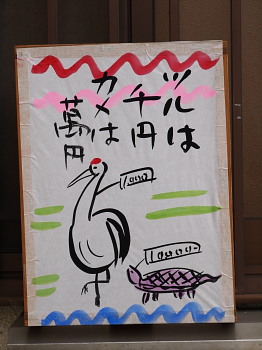 ツルは
千円
カメは
萬円
1000
10000